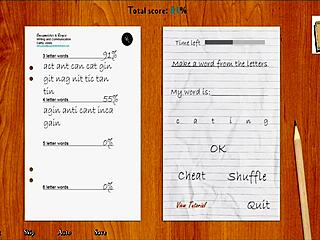 Total score: 81%
Writing and Communication
3 letter words 91%
act ant can cat gin
git nag nit tic tan
tin
4 letter words 55%
agin anti cant inca
gain
5 letter words 0%
6 letter words 0%
Time left
Make a word from the letters
My word is:
c a t i n g
OK
Cheat Shuffle
View Tutorial Quit
Skip Auto Save